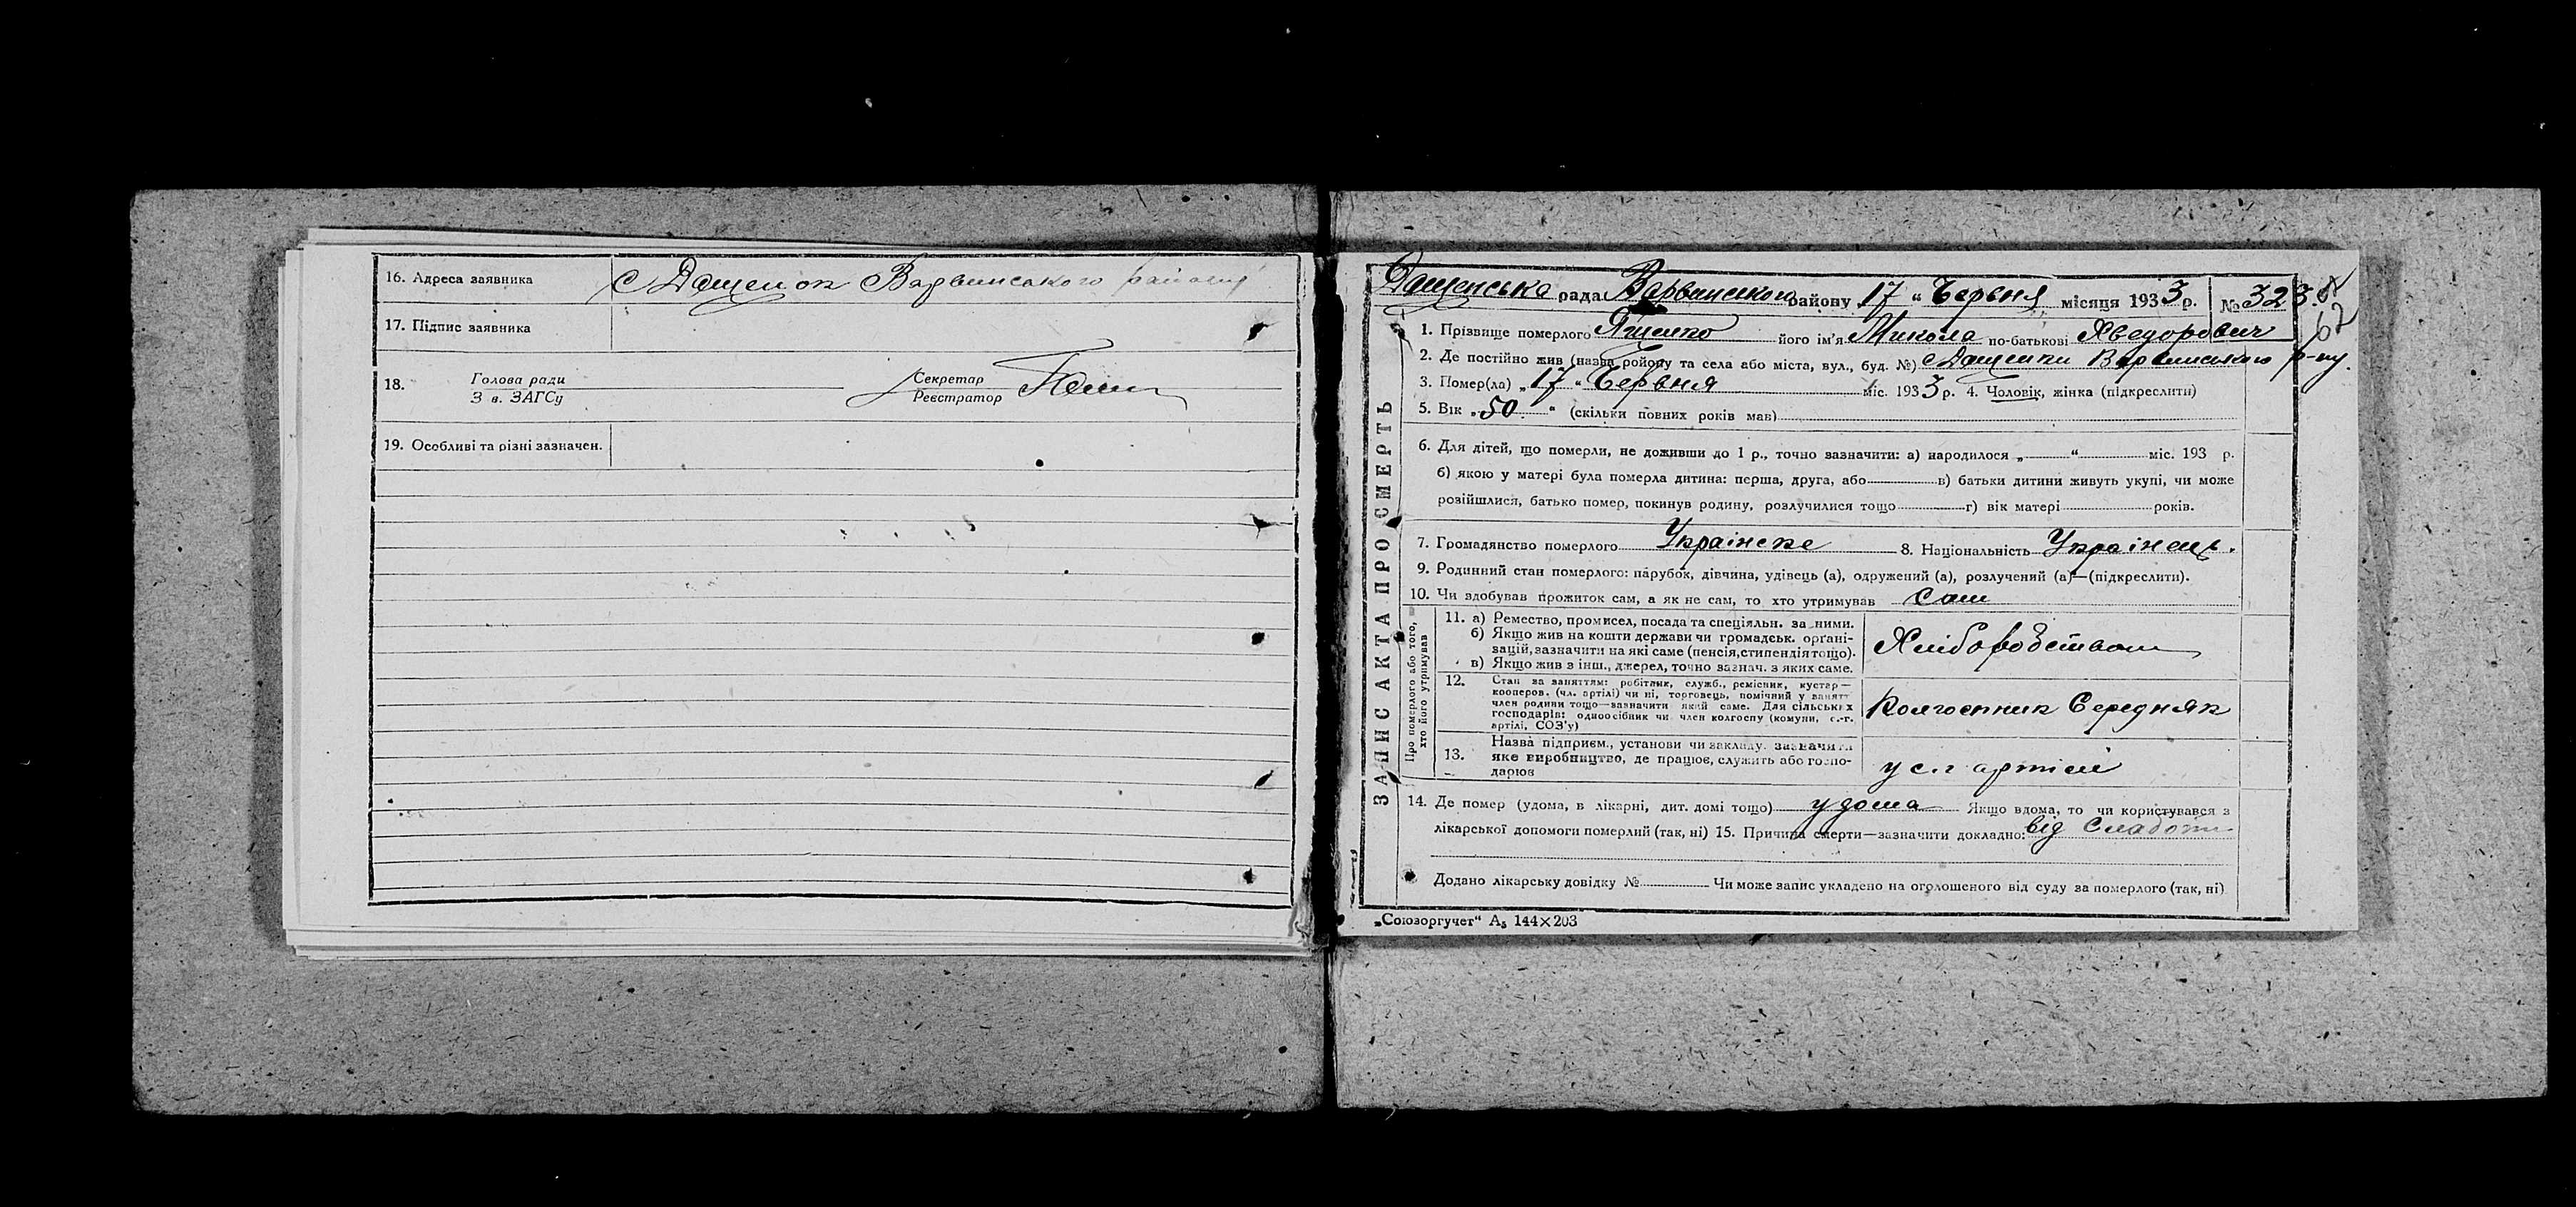 16. Адреса заявника с Дащенок Варвинського району
17. Підпис заявника
18. Голова ради Секретар
З в. ЗАГСу Реєстратор
19. Особливі та різні зазначен.
ЗАПИС АКТА ПРО СМЕРТЬ
Дащенська рада Варвинського району 17 "Червня місяця 1933 р. № 323.
62
1. Прізвище померлого його ім'я Микола по-батькові Хведорович
2. Де постійно жив (назва району та села або міста, вул., буд. №) с Дащенки Варвинського р-ну.
3. Помер(ла) „17 " Червня міс. 1933 р. 4. Чоловік, жінка (підкреслити)
5. Вік „50 " (скільки повних років мав)
6. Для дітей, що померли, не доживши до 1 р., точно зазначити: а) народилося „ " міс. 193 р.
б) якою у матері була померла дитина: перша, друга, або в) батьки дитини живуть укупі, чи може
розійшлися, батько помер, покинув родину, розлучилися тощо г) вік матері років.
7. Громадянство померлого Українске 8. Національність Українець.
9. Родинний стан померлого: парубок, дівчина, удівець (а), одружений (а), розлучений (а)—(підкреслити).
10. Чи здобував прожиток сам, а як не сам, то хто утримував Сам
Про померлого або того, хто його утримував
11. а) Ремество, промисел, посада та спеціяльн. за ними.
б) Якщо жив на кошти держави чи громадськ. органі-
зацій, зазначити на які саме (пенсія, стипендія тощо).
в) Якщо жив з інш., джерел, точно зазнач. з яких саме.
Хліборобством
12. Стан за заняттям: робітник, служб., ремісник, кустар—
кооперов. (чл. артілі) чи ні, торговець, помічний у занятт
член родини тощо—зазначити який саме. Для сільських
господарів: одноосібник чи член колгоспу (комуни, с.-г.
артілі, СОЗ'у)
Колгоспник Середняк
13. Назва підприєм., установи чи закладу. зазначити
яке виробництво, де працює, служить або госпо-
дарює
у с.г артілі
14. Де помер (удома, в лікарні, дит. домі тощо) удома Якщо вдома, то чи користувався з
лікарської допомоги померлий (так, ні) 15. Причина смерти—зазначити докладно: від Слабости
Додано лікарську довідку № Чи може запис укладено на оголошеного від суду за померлого (так, ні)
„Союзоргучет" А₅ 144×203